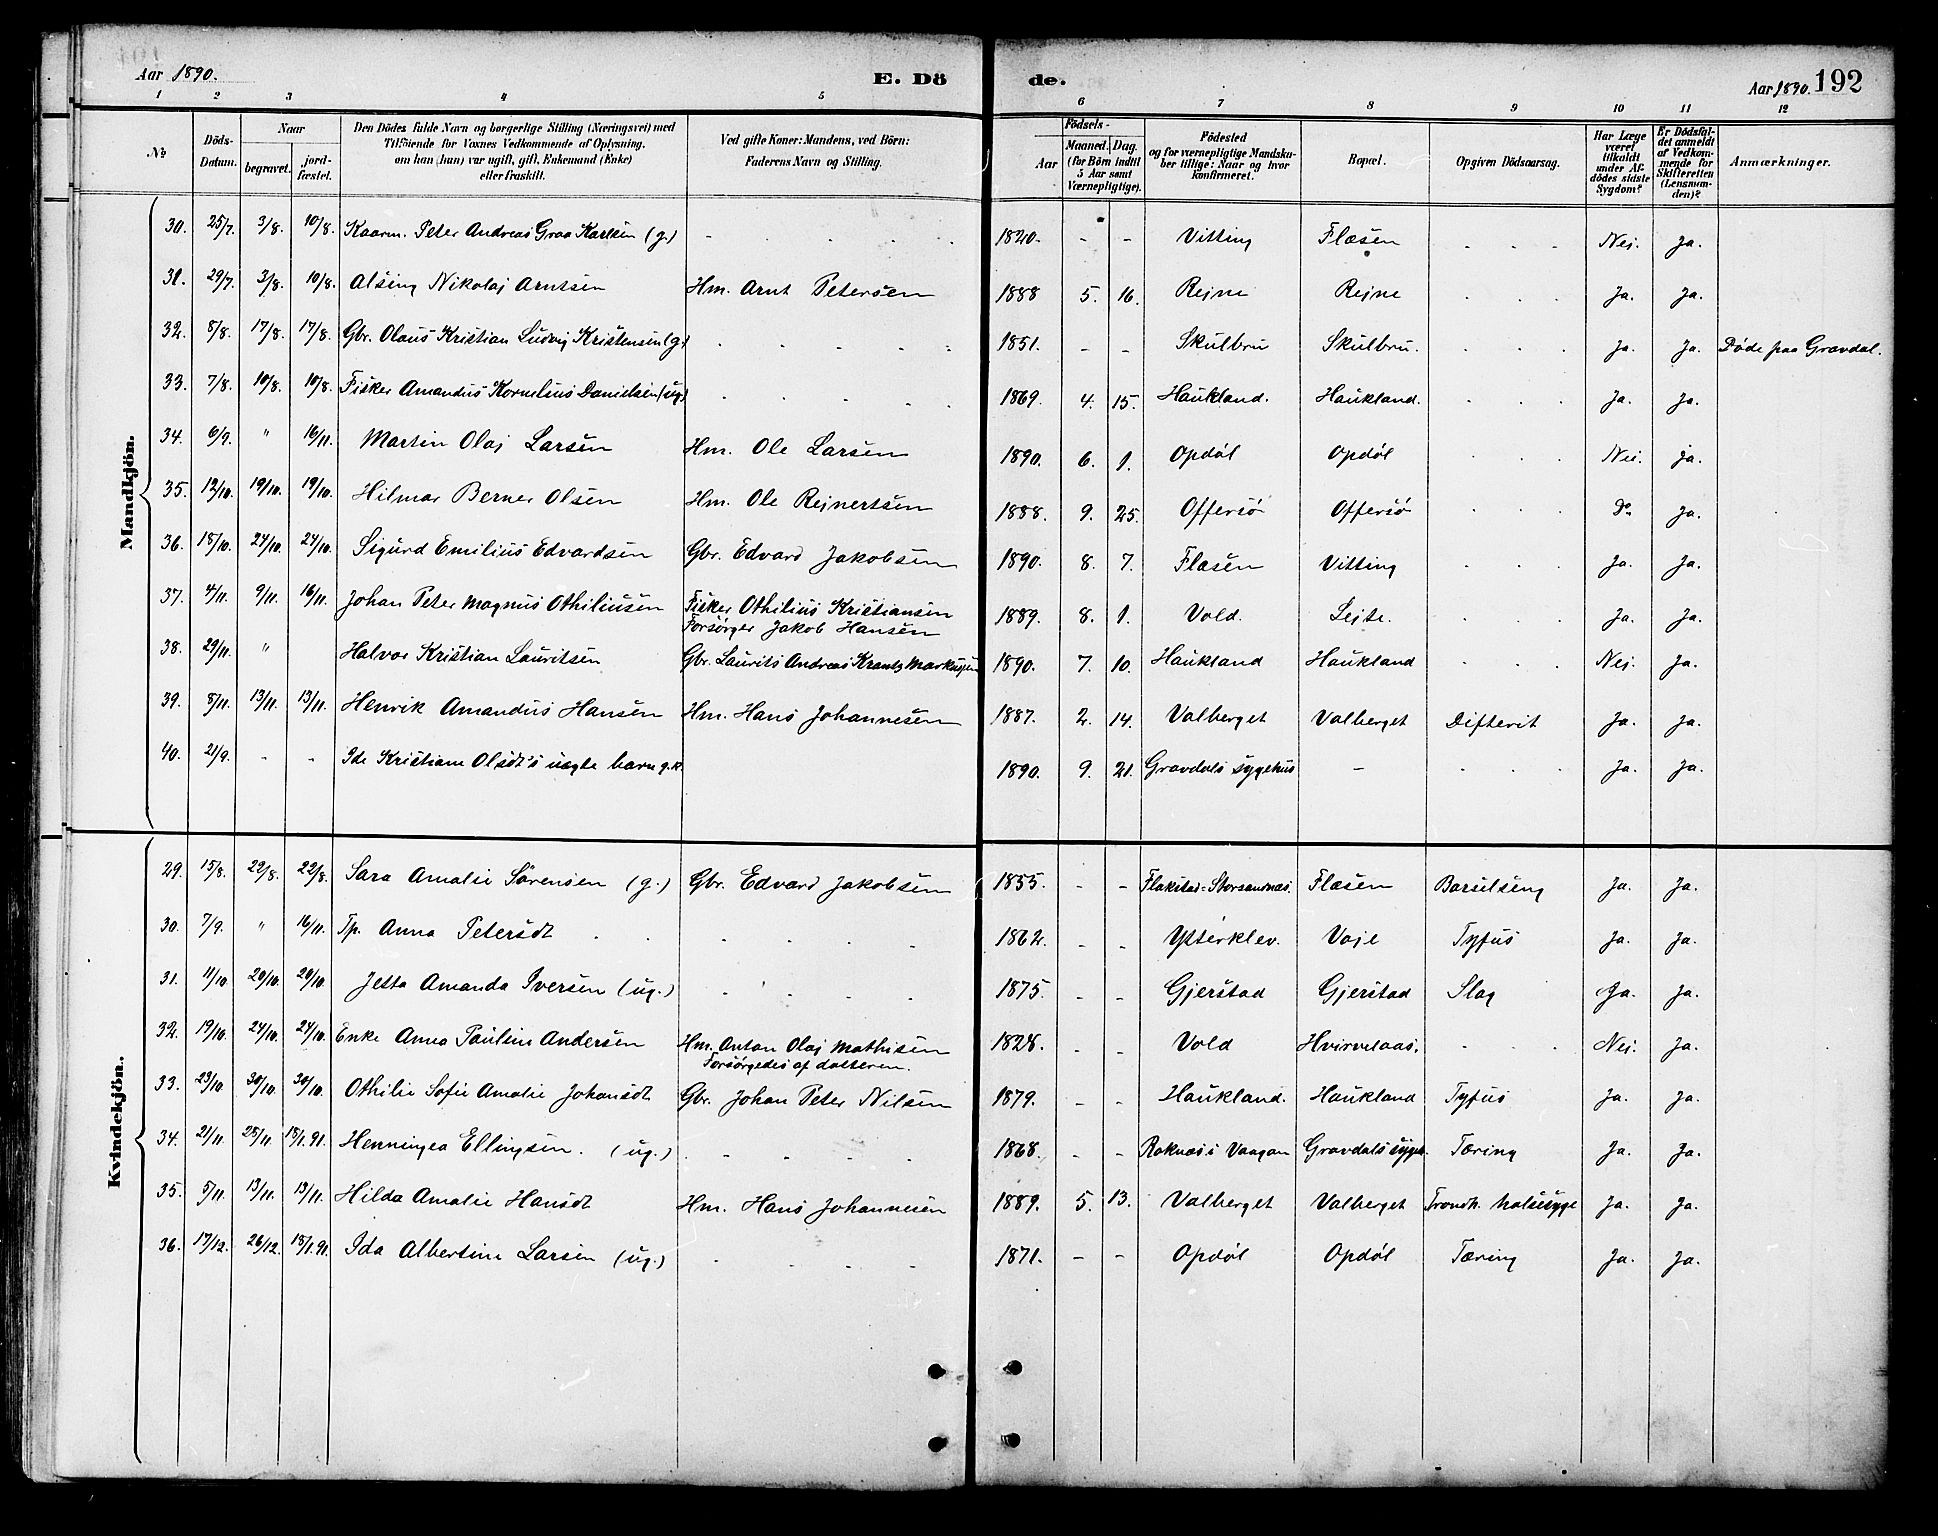 Aar 1890.
E. Dö
de.
Aar 1890. 192
1 2 3 4 5 6 7 8 9 10 11 12
No
Döds-Datum.
Naar
begravet.
jord-fæstet.
Den Dödes fulde Navn og borgerlige Stilling (Næringsvei) med
Tilföiende for Voxnes Vedkommende af Oplysning,
om han (hun) var ugift, gift, Enkemand (Enke)
eller fraskilt.
Ved gifte Koner: Mandens, ved Börn:
Faderens Navn og Stilling.
Födsels-
Aar
Maaned. Dag.
(for Börn indtil
5 Aar samt
Værnepligtige).
Födested
og for værnepligtige Mandska-
ber tillige: Naar og hvor
konfirmeret.
Bopæl.
Opgiven Dödsaarsag.
Har Læge
været
tilkaldt
under Af-
dödes sidste
Sygdom?
Er Dödsfal-
det anmeldt
af Vedkom-
mende for
Skifteretten
(Lensman-
den)?
Anmærkninger.
Mandkjön.
30. 25/7. 3/8. 10/8. Kaarm. Peter Andreas Graa Karlsen (g.) 1820. - - Vitting Flæsen Nei. Ja.
31. 29/7. 3/8. 10/8. Alsing Nikolaj Arntsen Hm. Arnt Petersen 1888 5. 16. Rejne Rejne Ja. Ja.
32. 8/8. 17/8. 17/8. Gbr. Olaus Kristian Ludvig Kristensen (g.) 1851. - - Skulbru Skulbru. Ja. Ja. Døde paa Gravdal.
33. 7/8. 10/8. 10/8. Fisker Amandus Kornelius Danielsen (ug.) 1869. 4. 15. Haukland. Haukland. Ja. Ja.
34. 6/9. " 16/11. Martin Olaj Larsen Hm. Ole Larsen 1890. 6. 1. Opdøl Opdøl Nei. Ja.
35. 12/10. 19/10. 19/10. Hilmar Berner Olsen Hm. Ole Rejnertsen 1888. 9. 25. Offersø Offersø Do Ja.
36. 18/10. 24/10. 24/10. Sigurd Emilius Edvardsen Gbr. Edvard Jakobsen 1890. 8. 7. Flæsen Vitting Ja. Ja.
37. 4/11. 9/11. 16/11. Johan Peter Magnus Othiliusen Fisker Othilius Kristiansen 1889. 8. 1. Vold. Lejte. Ja. Ja.
Forsørger Jakob Hansen
38. 29/11. " Halvor Kristian Lauritsen Gbr. Laurits Andreas Krantz Markussen 1890. 7. 10. Haukland Haukland Nei. Ja.
39. 8/11. 13/11. 13/11. Henrik Amandus Hansen Hm. Hans Johannesen 1887. 2. 14. Valberget Valberget Difterit Ja. Ja.
40. 21/9. - - Ide Kristiane Olsdt's uægte barn g.k. 1890. 9. 21. Gravdals sygehus - Ja. Ja.
Kvindekjön.
29. 15/8. 22/8. 22/8. Sara Amalie Sørensen (g.) Gbr. Edvard Jakobsen 1855. - - Flakstad-Storsandnæs. Flæsen Barselseng Ja. Ja.
30. 7/9. " 16/11. Tp. Anna Petersdt 1862. - - Ytterklev. Voje Tyfus Ja. Ja.
31. 11/10. 20/10. 20/10. Jetta Amanda Iversen (ug.) 1875. - - Gjerstad Gjerstad Slag Ja. Ja.
32. 19/10. 24/10. 24/10. Enke Anna Pauline Andersen Hm. Anton Olaj Mathisen 1828. - - Vold Hvirvelaas. Nei. Ja.
Forsørgedes af datteren.
33. 23/10 30/10. 30/10. Othilie Sofie Amalie Johansdt Gbr. Johan Peter Nilsen 1879. - - Haukland. Haukland Tyfus Ja. Ja.
34. 21/11. 28/11. 18/1. 91. Henningea Ellingsen. (ug.) 1868. - - Roknæs i Vaagan Gravdals sygeh. Tæring Ja. Ja.
35. 5/11. 13/11. 13/11. Hilda Amalie Hansdt Hm. Hans Johannesen 1889. 5. 13. Valberget Valberget Trondh. halsesyge Ja. Ja.
36. 17/12. 26/12. 18/1. 91. Ida Albertine Larsen (ug.) 1871. - - Opdøl Opdøl Tæring Ja. Ja.